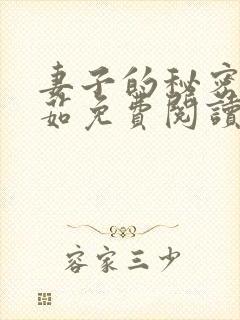 妻子的秘密
茹免費閱讀
容家三少